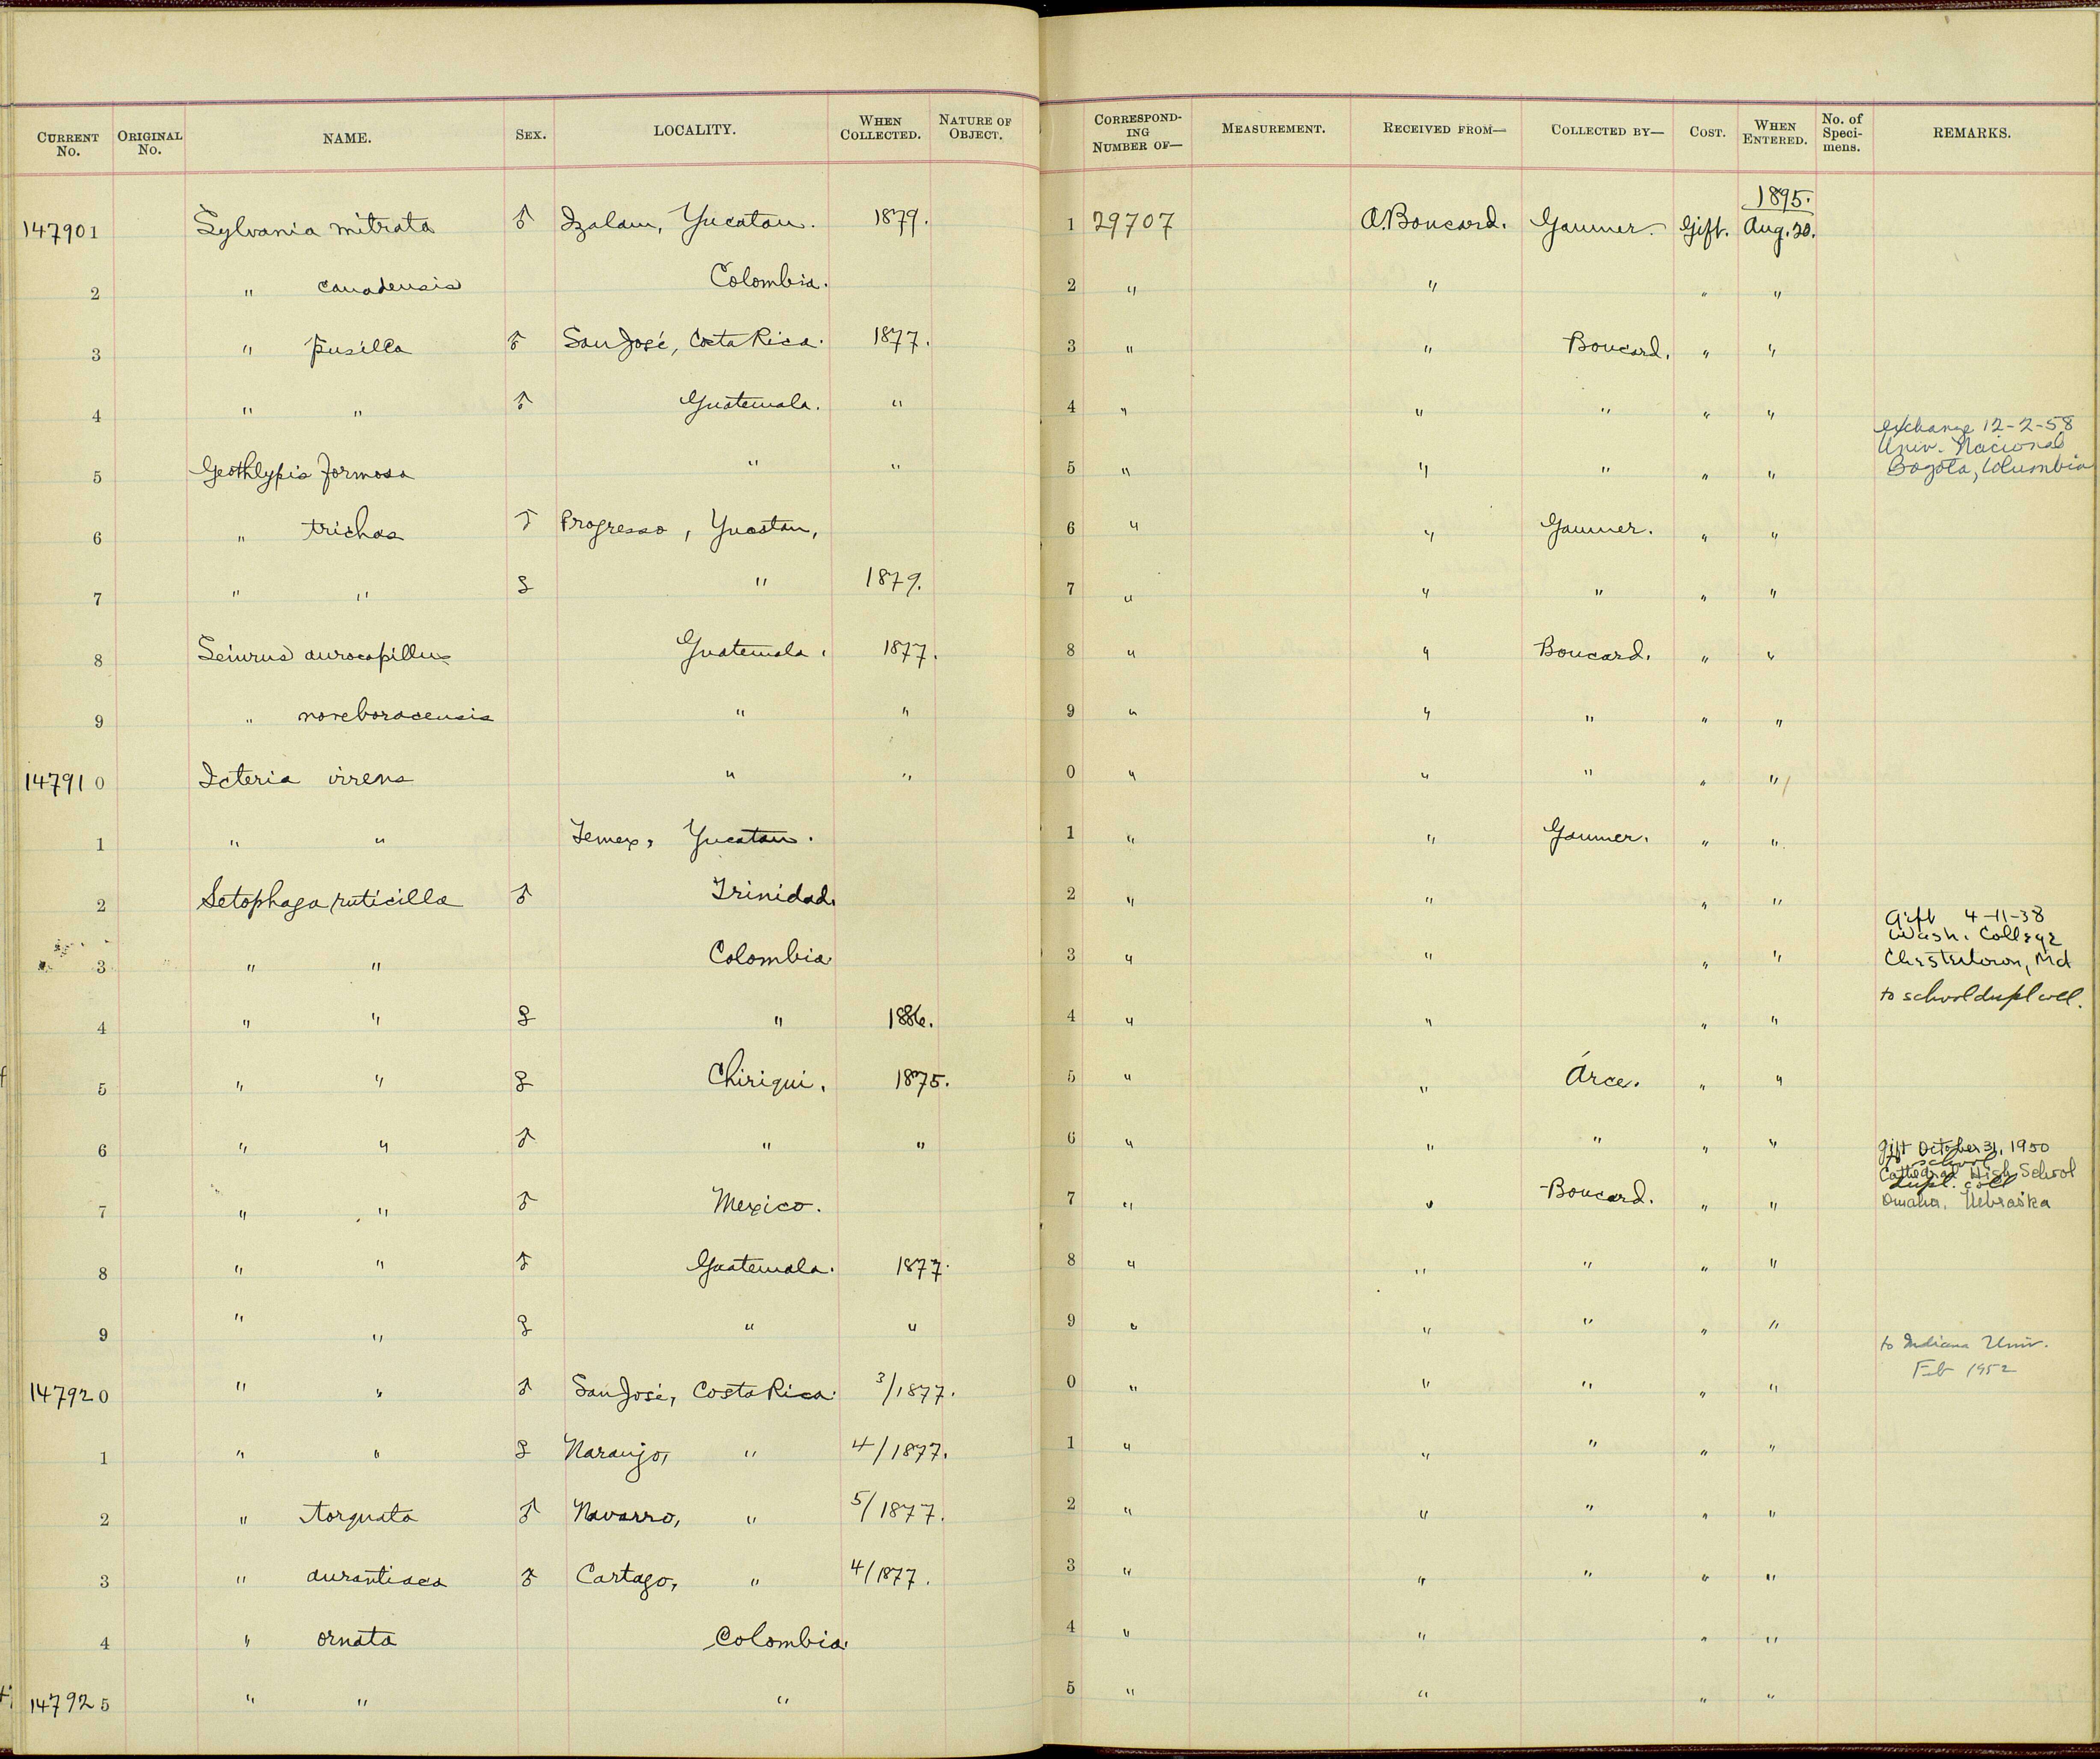 CURRENT No. ORIGINAL No. NAME. SEX. LOCALITY. WHEN COLLECTED. NATURE OF OBJECT. CORRESPONDING NUMBER OF— MEASUREMENT. RECEIVED FROM— COLLECTED BY— COST. WHEN ENTERED. No. of Specimens. REMARKS.
1895.
147901 Sylvania mitrata ♂ Izalam, Yucatan. 1879. 1 29707 A. Boucard. Gaumer. Gift. Aug. 20.
2 " canadensis Colombia. 2 " " " "
3 " pusilla ♂ San José, Costa Rica. 1877. 3 " " Boucard. " "
4 " " ♂ Guatemala. " 4 " " " " "
exchange 12-2-58
Univ. Nacional
5 Geothlypis formosa " " 5 " " " " " Bogota, Columbia
6 " trichas ♂ Progresso, Yucatan, 6 " " Gaumer. " "
7 " " ♀ " 1879. 7 " " " " "
8 Seiurus aurocapillus Guatemala. 1877. 8 " " Boucard. " "
9 " noveboracensis " " 9 " " " " "
147910 Icteria virens " " 0 " " " " "
1 " " Temex, Yucatan. 1 " " Gaumer. " "
2 Setophaga ruticilla ♂ Trinidad. 2 " " " "
Gift 4-11-38
Wash. College
3 " " Colombia 3 " " " " Chestertown, Md
4 " " ♀ " 1886. 4 " " " " to school dupl coll.
5 " " ♀ Chiriqui. 1875. 5 " " Arce. " "
6 " " ♂ " " 6 " " " " " gift October 31, 1950
school
Cathedral High School
dupl. coll
7 " " ♂ Mexico. 7 " " Boucard. " " Omaha, Nebraska
8 " " ♂ Guatemala. 1877. 8 " " " " "
9 " " ♀ " " 9 " " " " " to Indiana Univ.
Feb 1952
147920 " " ♂ San José, Costa Rica. 3/1877. 0 " " " " "
1 " " ♀ Naranjo, " 4/1877. 1 " " " " "
2 " torquata ♂ Navarro, " 5/1877. 2 " " " " "
3 " aurantiaca ♂ Cartago, " 4/1877. 3 " " " " "
4 " ornata Colombia. 4 " " " "
147925 " " " 5 " " " "